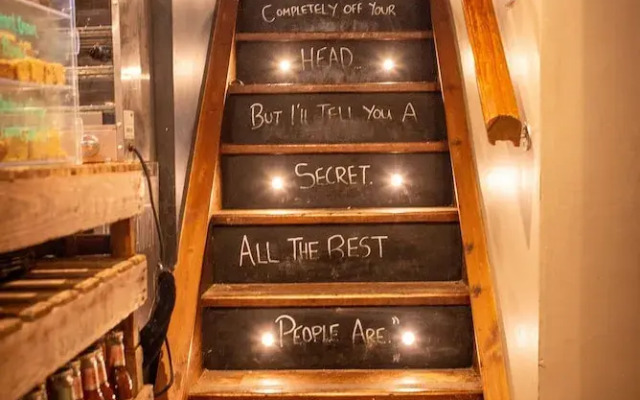 COMPLETELY OFF YOUR
HEAD...
BUT I'LL TELL YOU A
SECRET.
ALL THE BEST
PEOPLE ARE."